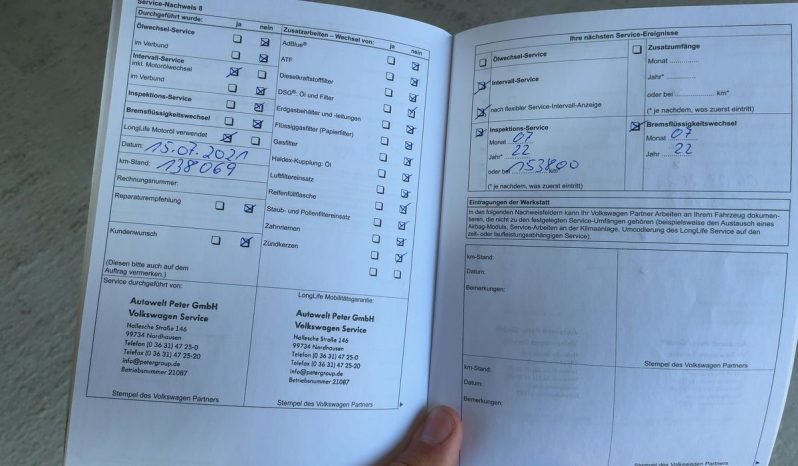 Service-Nachweis 8
Durchgeführt wurde: ja nein
Ölwechsel-Service
im Verbund
Intervall-Service
inkl. Motorölwechsel
im Verbund
Inspektions-Service
Bremsflüssigkeitswechsel
LongLife Motoröl verwendet
Datum: 15.07.2021
km-Stand: 138069
Rechnungsnummer:
Reparaturempfehlung
Kundenwunsch
(Diesen bitte auch auf dem
Auftrag vermerken.)
Service durchgeführt von:
Autowelt Peter GmbH
Volkswagen Service
Hallesche Straße 146
99734 Nordhausen
Telefon (0 36 31) 47 25-0
Telefax (0 36 31) 47 25-20
info@petergroup.de
Betriebsnummer 21087
Stempel des Volkswagen Partners
Zusatzarbeiten – Wechsel von: ja nein
AdBlue®
ATF
Dieselkraftstofffilter
DSG®: Öl und Filter
Erdgasbehälter und -leitungen
Flüssiggasfilter (Papierfilter)
Gasfilter
Haldex-Kupplung: Öl
Luftfiltereinsatz
Reifenfüllflasche
Staub- und Pollenfiltereinsatz
Zahnriemen
Zündkerzen
LongLife Mobilitätsgarantie:
Autowelt Peter GmbH
Volkswagen Service
Hallesche Straße 146
99734 Nordhausen
Telefon (0 36 31) 47 25-0
Telefax (0 36 31) 47 25-20
info@petergroup.de
Betriebsnummer 21087
Stempel des Volkswagen Partners
Ihre nächsten Service-Ereignisse
Ölwechsel-Service
Intervall-Service
nach flexibler Service-Intervall-Anzeige
Zusatzumfänge
Monat
Jahr*
oder bei km*
(* je nachdem, was zuerst eintritt)
Inspektions-Service
Monat 07
Jahr* 22
oder bei 153800 km
(* je nachdem, was zuerst eintritt)
Bremsflüssigkeitswechsel
Monat 07
Jahr 22
Eintragungen der Werkstatt
In den folgenden Nachweisfeldern kann Ihr Volkswagen Partner Arbeiten an Ihrem Fahrzeug dokumen-
tieren, die nicht zu den festgelegten Service-Umfängen gehören (beispielsweise den Austausch eines
Airbag-Moduls, Service-Arbeiten an der Klimaanlage, Umcodierung des LongLife Service auf den
zeit- oder laufleistungsabhängigen Service).
km-Stand:
Datum:
Bemerkungen:
Stempel des Volkswagen Partners
km-Stand:
Datum:
Bemerkungen:
Stempel des Volkswagen Partners